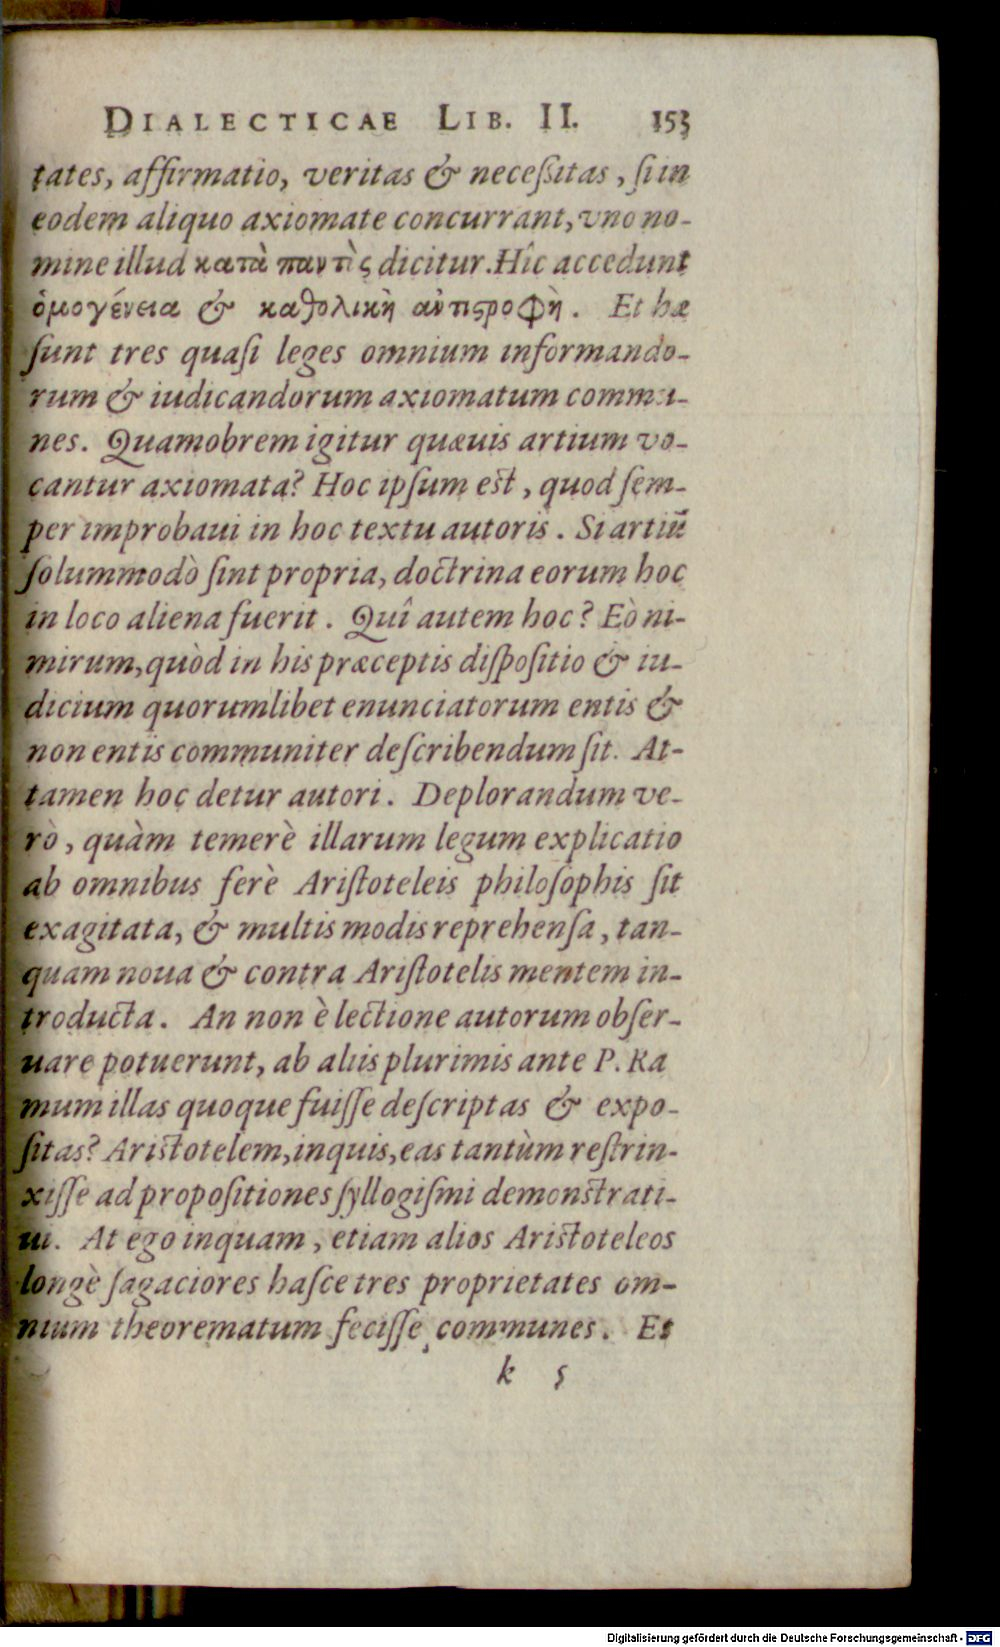 DIALECTICAE LIB. II. 153
tates, affirmatio, veritas & neceſsitas, ſi in
eodem aliquo axiomate concurrant, vno no-
mine illud κατὰ παντὸς dicitur. Hîc accedunt
ὁμογένεια & καθολικὴ ἀντιςροφὴ. Et hæ
ſunt tres quaſi leges omnium informando-
rum & iudicandorum axiomatum commu-
nes. Quamobrem igitur quæuis artium vo-
cantur axiomata? Hoc ipſum est, quod ſem-
per improbaui in hoc textu autoris. Si artiū
ſolummodò ſint propria, doctrina eorum hoc
in loco aliena fuerit. Quî autem hoc? Eò ni-
mirum, quòd in his præceptis diſpoſitio & iu-
dicium quorumlibet enunciatorum entis &
non entis communiter deſcribendum ſit. At-
tamen hoc detur autori. Deplorandum ve-
rò, quàm temerè illarum legum explicatio
ab omnibus ferè Ariſtoteleis philoſophis ſit
exagitata, & multis modis reprehenſa, tan-
quam noua & contra Ariſtotelis mentem in-
troducta. An non è lectione autorum obſer-
uare potuerunt, ab aliis plurimis ante P. Ra
mum illas quoque fuiſſe deſcriptas & expo-
ſitas? Aristotelem, inquis, eas tantùm reſtrin-
xiſſe ad propoſitiones ſyllogiſmi demonstrati-
ui. At ego inquam, etiam alios Aristoteleos
longè ſagaciores haſce tres proprietates om-
nium theorematum feciſſe communes. Et
k 5
Digitalisierung gefördert durch die Deutsche Forschungsgemeinschaft - DFG